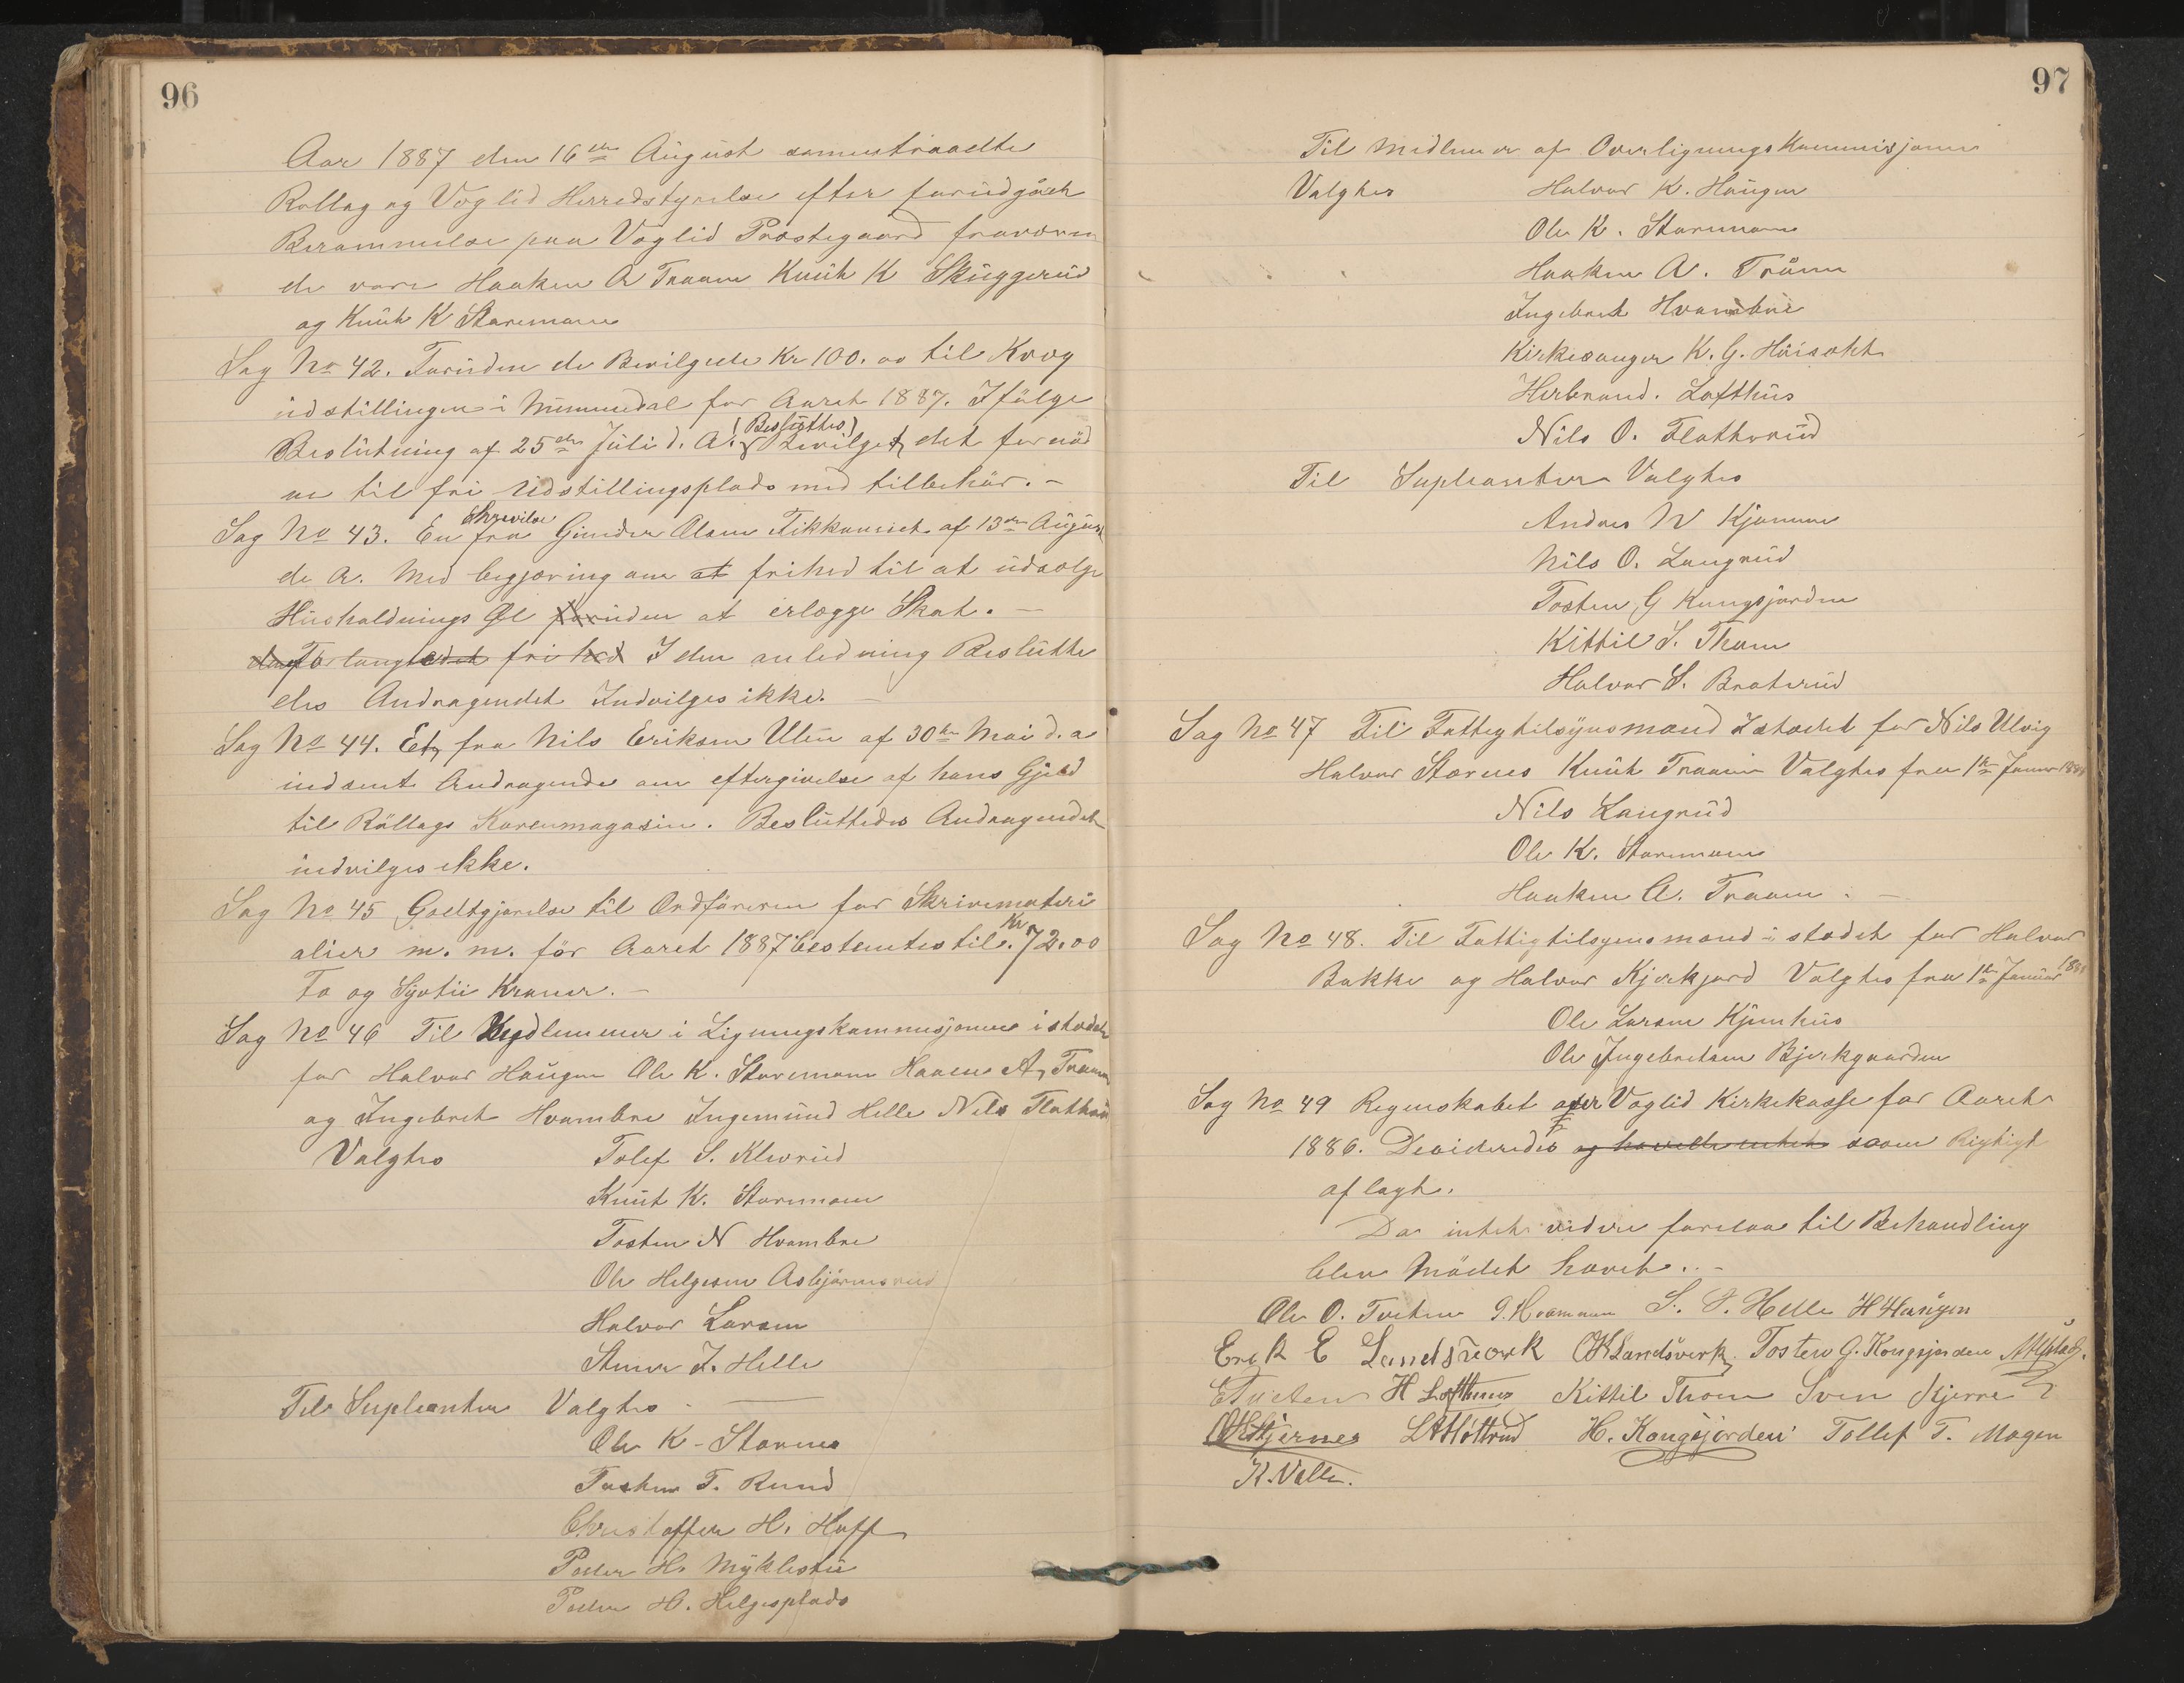 96
Aar 1887 den 16de August sammentraadte
Rollag og Væglid Herredstyrelse efter forudgået
Berammelse paa Væglid Præstegaard fraværen
de vare Haaken A Traaen Knut K Skuggerud
og Knut K Staremoen
Sag No 42. Foruden de Bevilgede Kr 100.00 til Kvæg
udstillingen i Nummedal for Aaret 1887. Ifølge
Beslutning af 25de Juli d. A. (Besluttes) bevilget det fornød
ne til fri Udstillingsplads med tilbehör. -
Sag No 43. En Skrivelse fra Gunder Olsen Fikkan af 13de August
de A. Med begjæring om at frihed til at udsælge
Husholdnings Øl foruden at erlægge Skat. -
forlangtedet frihed I den anledning Beslutte
des Andragendet Indvilges ikke. -
Sag No 44. Et fra Nils Eriksen Ulen af 30te Mai d. a
indsent Andragende om eftergivelse af hans Gjeld
til Rollags Kornmagasin. Besluttedes Andragendet
indvilges ikke.
Sag No 45 Godtgjørelse til Ordføreren for Skrivemateri
alier m. m. för Aaret 1887 bestemtes til Kr. 72.00
To og Syvti Kroner. -
Sag No 46 Til Medlemmer i Ligningskommisjonen istedet
for Halvor Haugen Ole K. Staremoen Haaken A, Traaen
og Ingebret Hvambre Ingemund Helle Nils Flatherud
Valgtes Tolef S. Kleverud
Knut K. Staremoen
Tosten N Hvambre
Ole Helgesen Asbjörnsrud
Halvor Larsen
Stener I. Helle
Til Supleanter Valgtes -
Ole K - Stærnes
Tosten T. Rund
Christoffer H. Hoff
Peder H. Myklestu
Peder H. Helgesplads
97
Til Medlemer af Overligningskommisjonen
Valgtes Halvor K. Haugen
Ole K. Staremoen
Haaken A. Tråen
Ingebret Hvambre
Kirkesanger K. G. Höisæht
Herbrand. Lofthus
Nils O. Flatherud
Til Supleanter Valgtes
Anders N Kjomme
Nils O. Langrud
Tosten G Kongsjorden
Kittil S. Thom
Halvor S. Braterud
Sag No 47 Til Fattigtilsynsmænd Istædet for Nils Ulvig
Halvor Stærnes Knut Traaen Valgtes fra 1te Januar 1888
Nils Langrud
Ole K. Staremoen
Haaken A. Traaen. -
Sag No 48. Til Fattigtilsynsmænd i stedet for Halvor
Bakke og Halvor Kjerkjord Valgtes fra 1te Januar 1888
Ole Larsen Kjemhus
Ole Ingebretsen Bjerkgaarden
Sag No 49 Regnskabet over Væglid Kirkekasse for Aaret
1886. Desideredes og havde intet saaom Rigtigt
aflagt.
Da intet videre forelaa til Behandling
blev Mödet hævet. . -
Ole O. Tveten S. S. Helle H Haugen
Erik E Landsverk OK Landsverk Tosten G. Kongsjorden
E Tveten H Lofthus Kittil Thom Sven Kjerre
OKStjernes H. Kongsjorden Tollef T. Mogen
K. Velle.